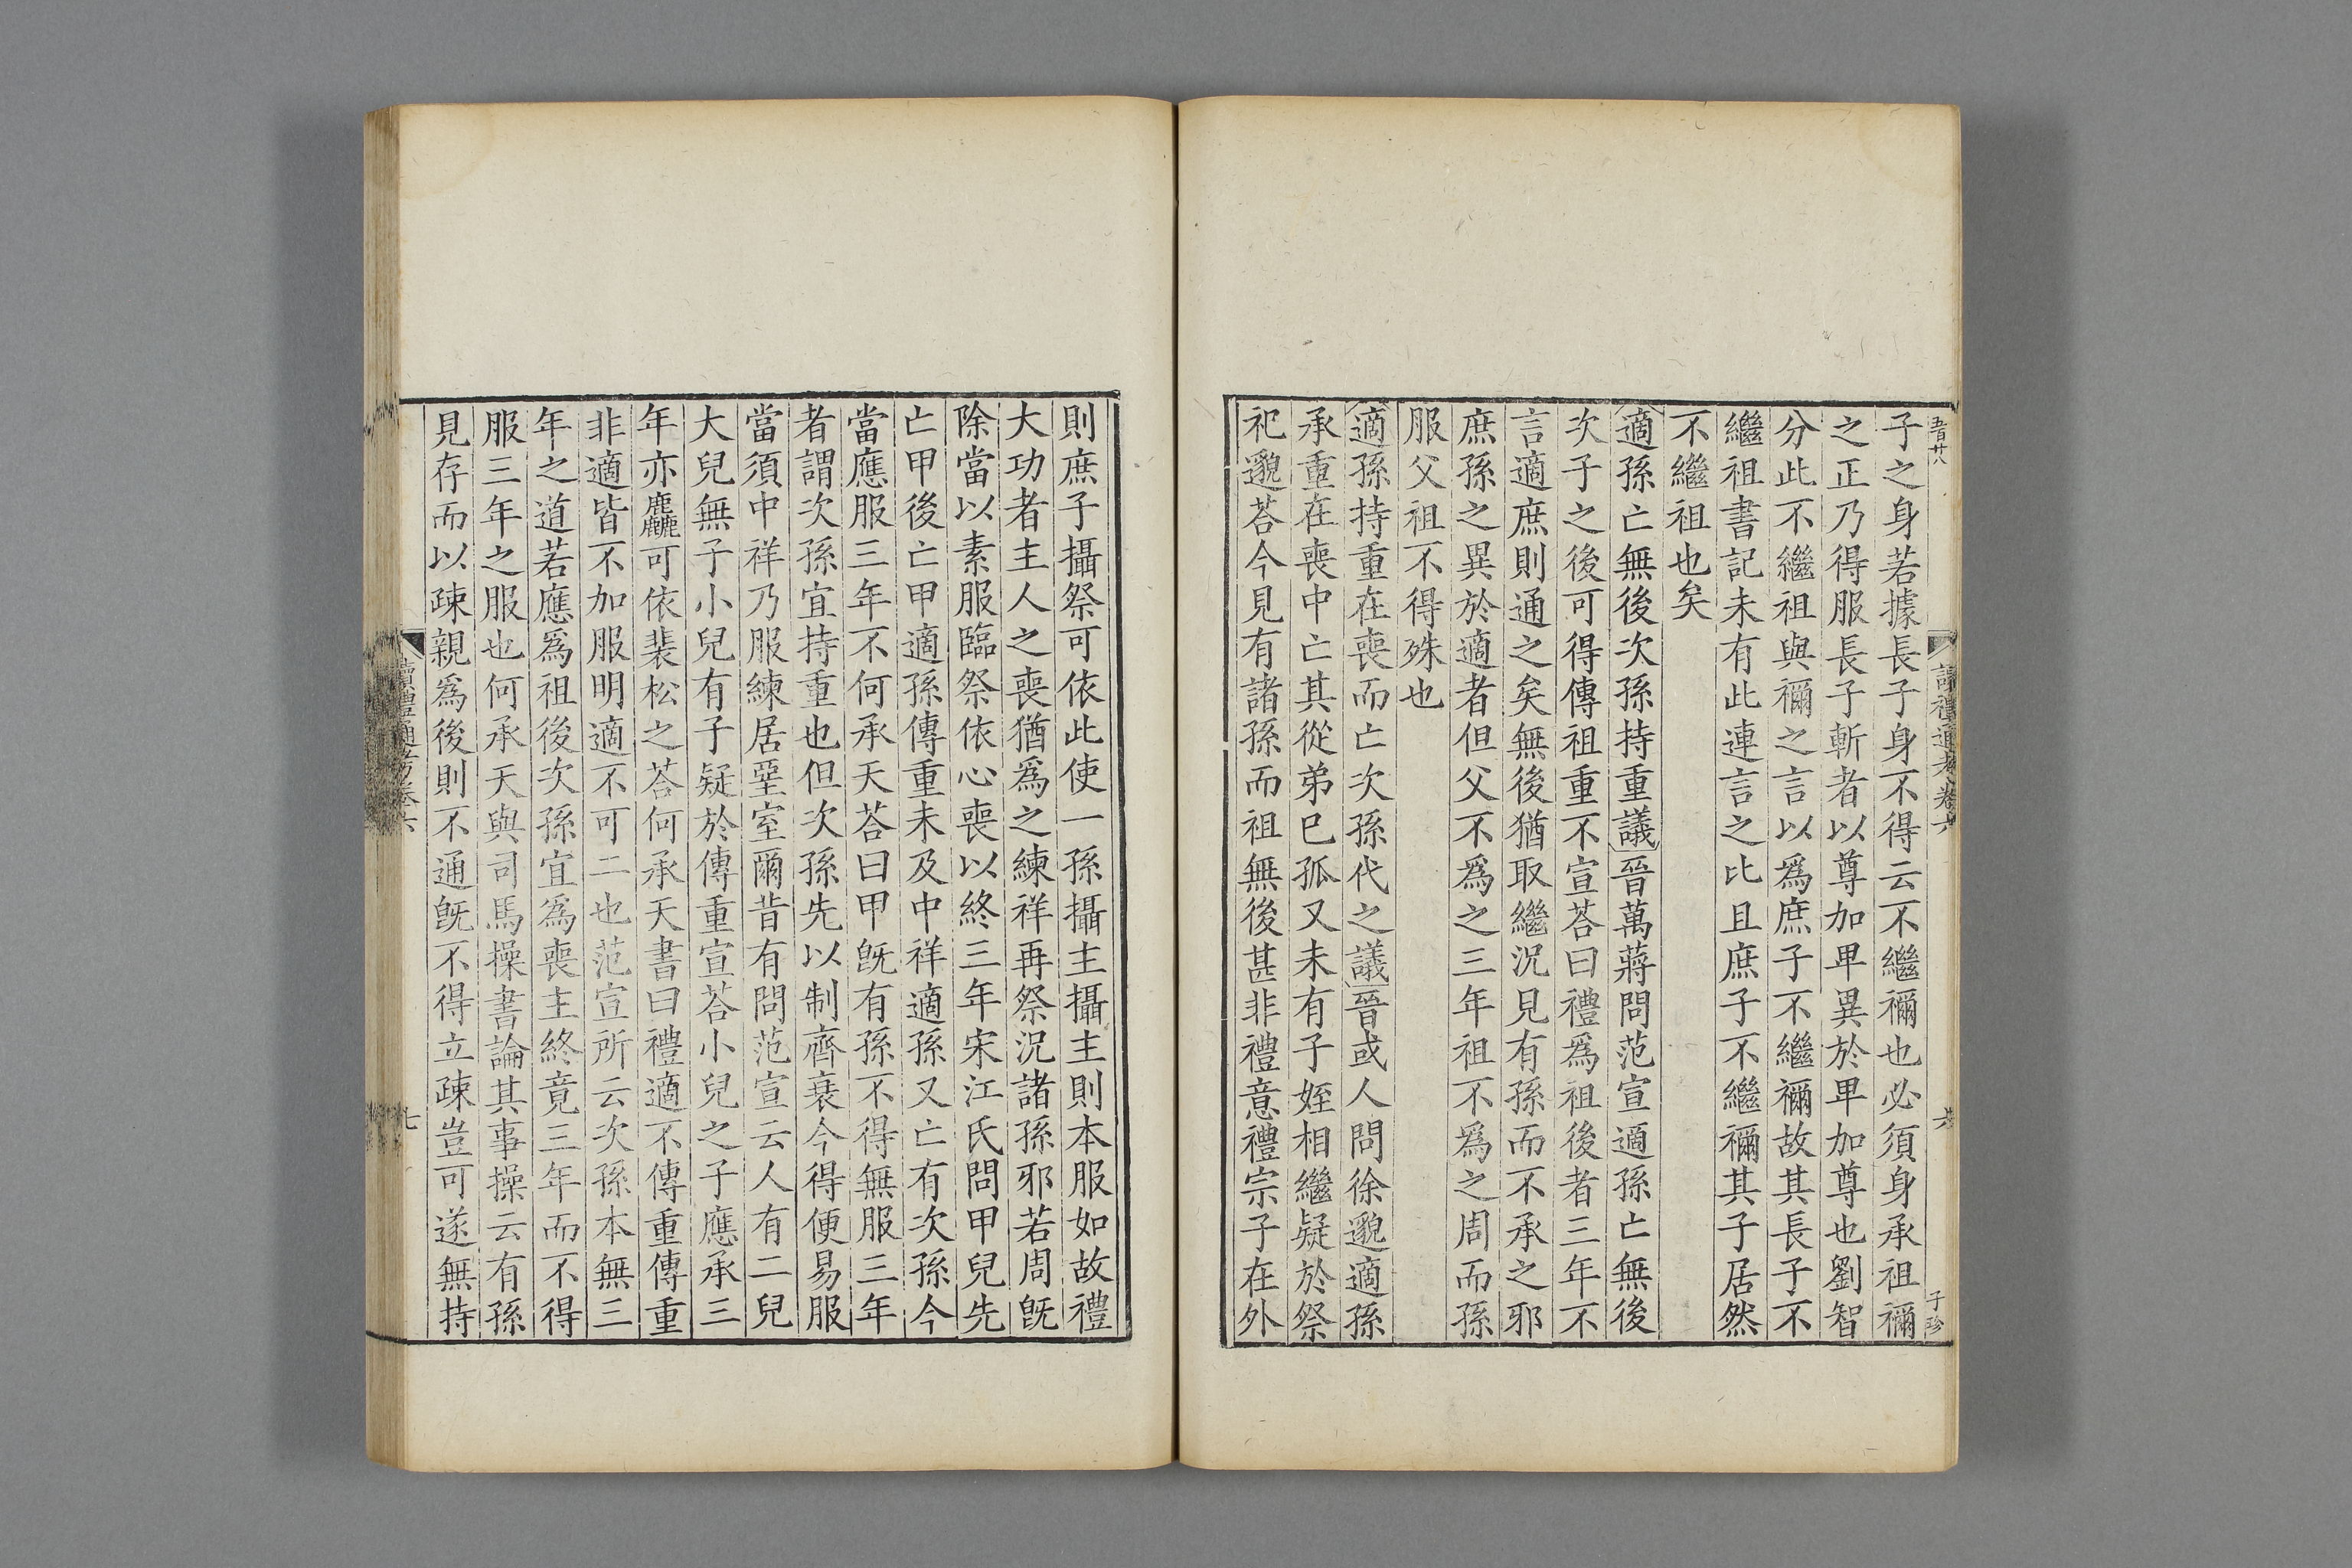 五百廿八
讀禮通考卷六
六
子珍
子之身若據長子身不得云不繼禰也必須身承祖禰
之正乃得服長子斬者以尊加卑異於卑加尊也劉智
分此不繼祖與禰之言以爲庶子不繼禰故其長子不
繼祖書記未有此連言之比且庶子不繼禰其子居然
不繼祖也矣
適孫亡無後次孫持重議晉萬蔣問范宣適孫亡無後
次子之後可得傳祖重不宣荅曰禮爲祖後者三年不
言適庶則通之矣無後猶取繼況見有孫而不承之邪
庶孫之異於適者但父不爲之三年祖不爲之周而孫
服父祖不得殊也
適孫持重在喪而亡次孫代之議晉或人問徐邈適孫
承重在喪中亡其從弟已孤又未有子姪相繼疑於祭
祀邈荅今見有諸孫而祖無後甚非禮意禮宗子在外
則庶子攝祭可依此使一孫攝主攝主則本服如故禮
大功者主人之喪猶爲之練祥再祭況諸孫邪若周旣
除當以素服臨祭依心喪以終三年宋江氏問甲兒先
亡甲後亡甲適孫傳重未及中祥適孫又亡有次孫今
當應服三年不何承天荅曰甲旣有孫不得無服三年
者謂次孫宜持重也但次孫先以制齊衰今得便易服
當須中祥乃服練居堊室爾昔有問范宣云人有二兒
大兒無子小兒有子疑於傳重宣荅小兒之子應承三
年亦麤可依裴松之荅何承天書曰禮適不傳重傳重
非適皆不加服明適不可二也范宣所云次孫本無三
年之道若應爲祖後次孫宜爲喪主終竟三年而不得
服三年之服也何承天與司馬操書論其事操云有孫
見存而以疎親爲後則不通旣不得立疎豈可遂無持
讀禮通考卷六
七